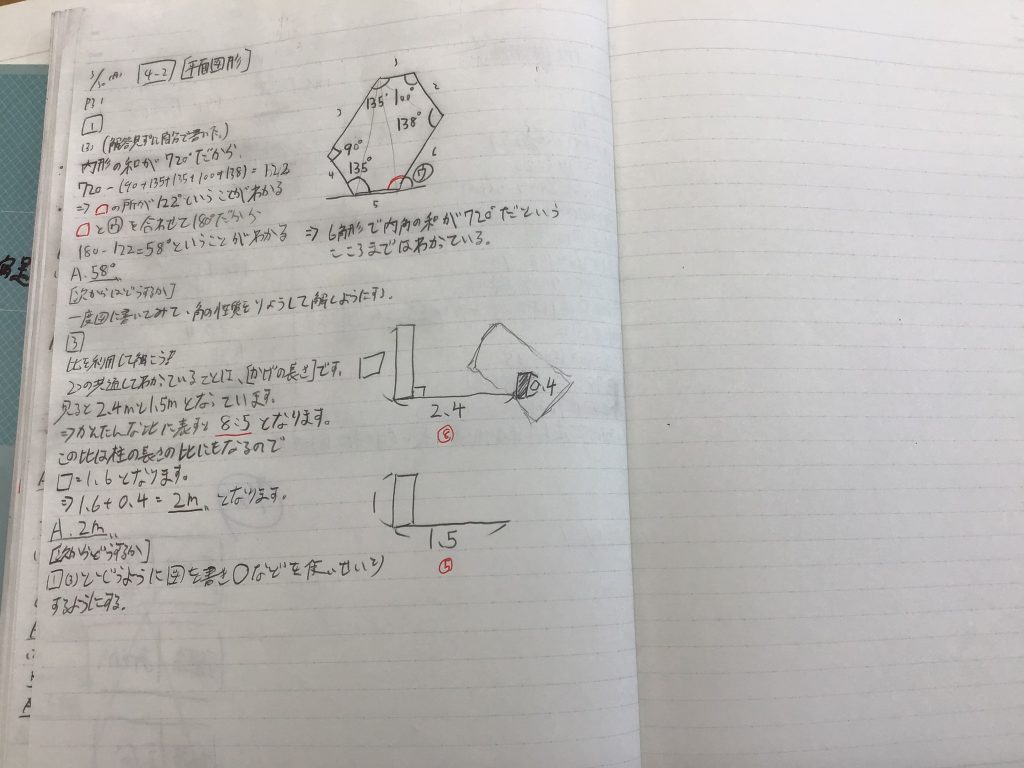 3/30(月) 4-2 [平面図形]
P31
1
(3) (解答見ずに自分で書いた。)
内形の和が720°だから
720-(90+135+135+100+138)=122
⇒ の所が122°ということがわかる
と を合わせて180°だから
180-122=58°ということがわかる
A.58°
[次からはどうするか]
一度図に書いてみて、角の性質をりようして解くようにする。
3
135° 100°
138°
90°
135° ウ
4 5 6
3 3 2
⇒ 6角形で内角の和が720°だという
ところまではわかっている。
比を利用して解こう!
2つの共通してわかっていることは、[かげの長さ]です。
見ると2.4mと1.5mとなっています。
⇒かんたんな比に表すと8:5となります。
この比は柱の長さの比にもなるので
□=1.6となります。
⇒1.6+0.4=2m となります。
A.2m
[次からどうするか]
1(3)とどうように図を書き○などを使いせいり
するようにする。
□
2.4
⑧
0.4
1
1.5
⑤